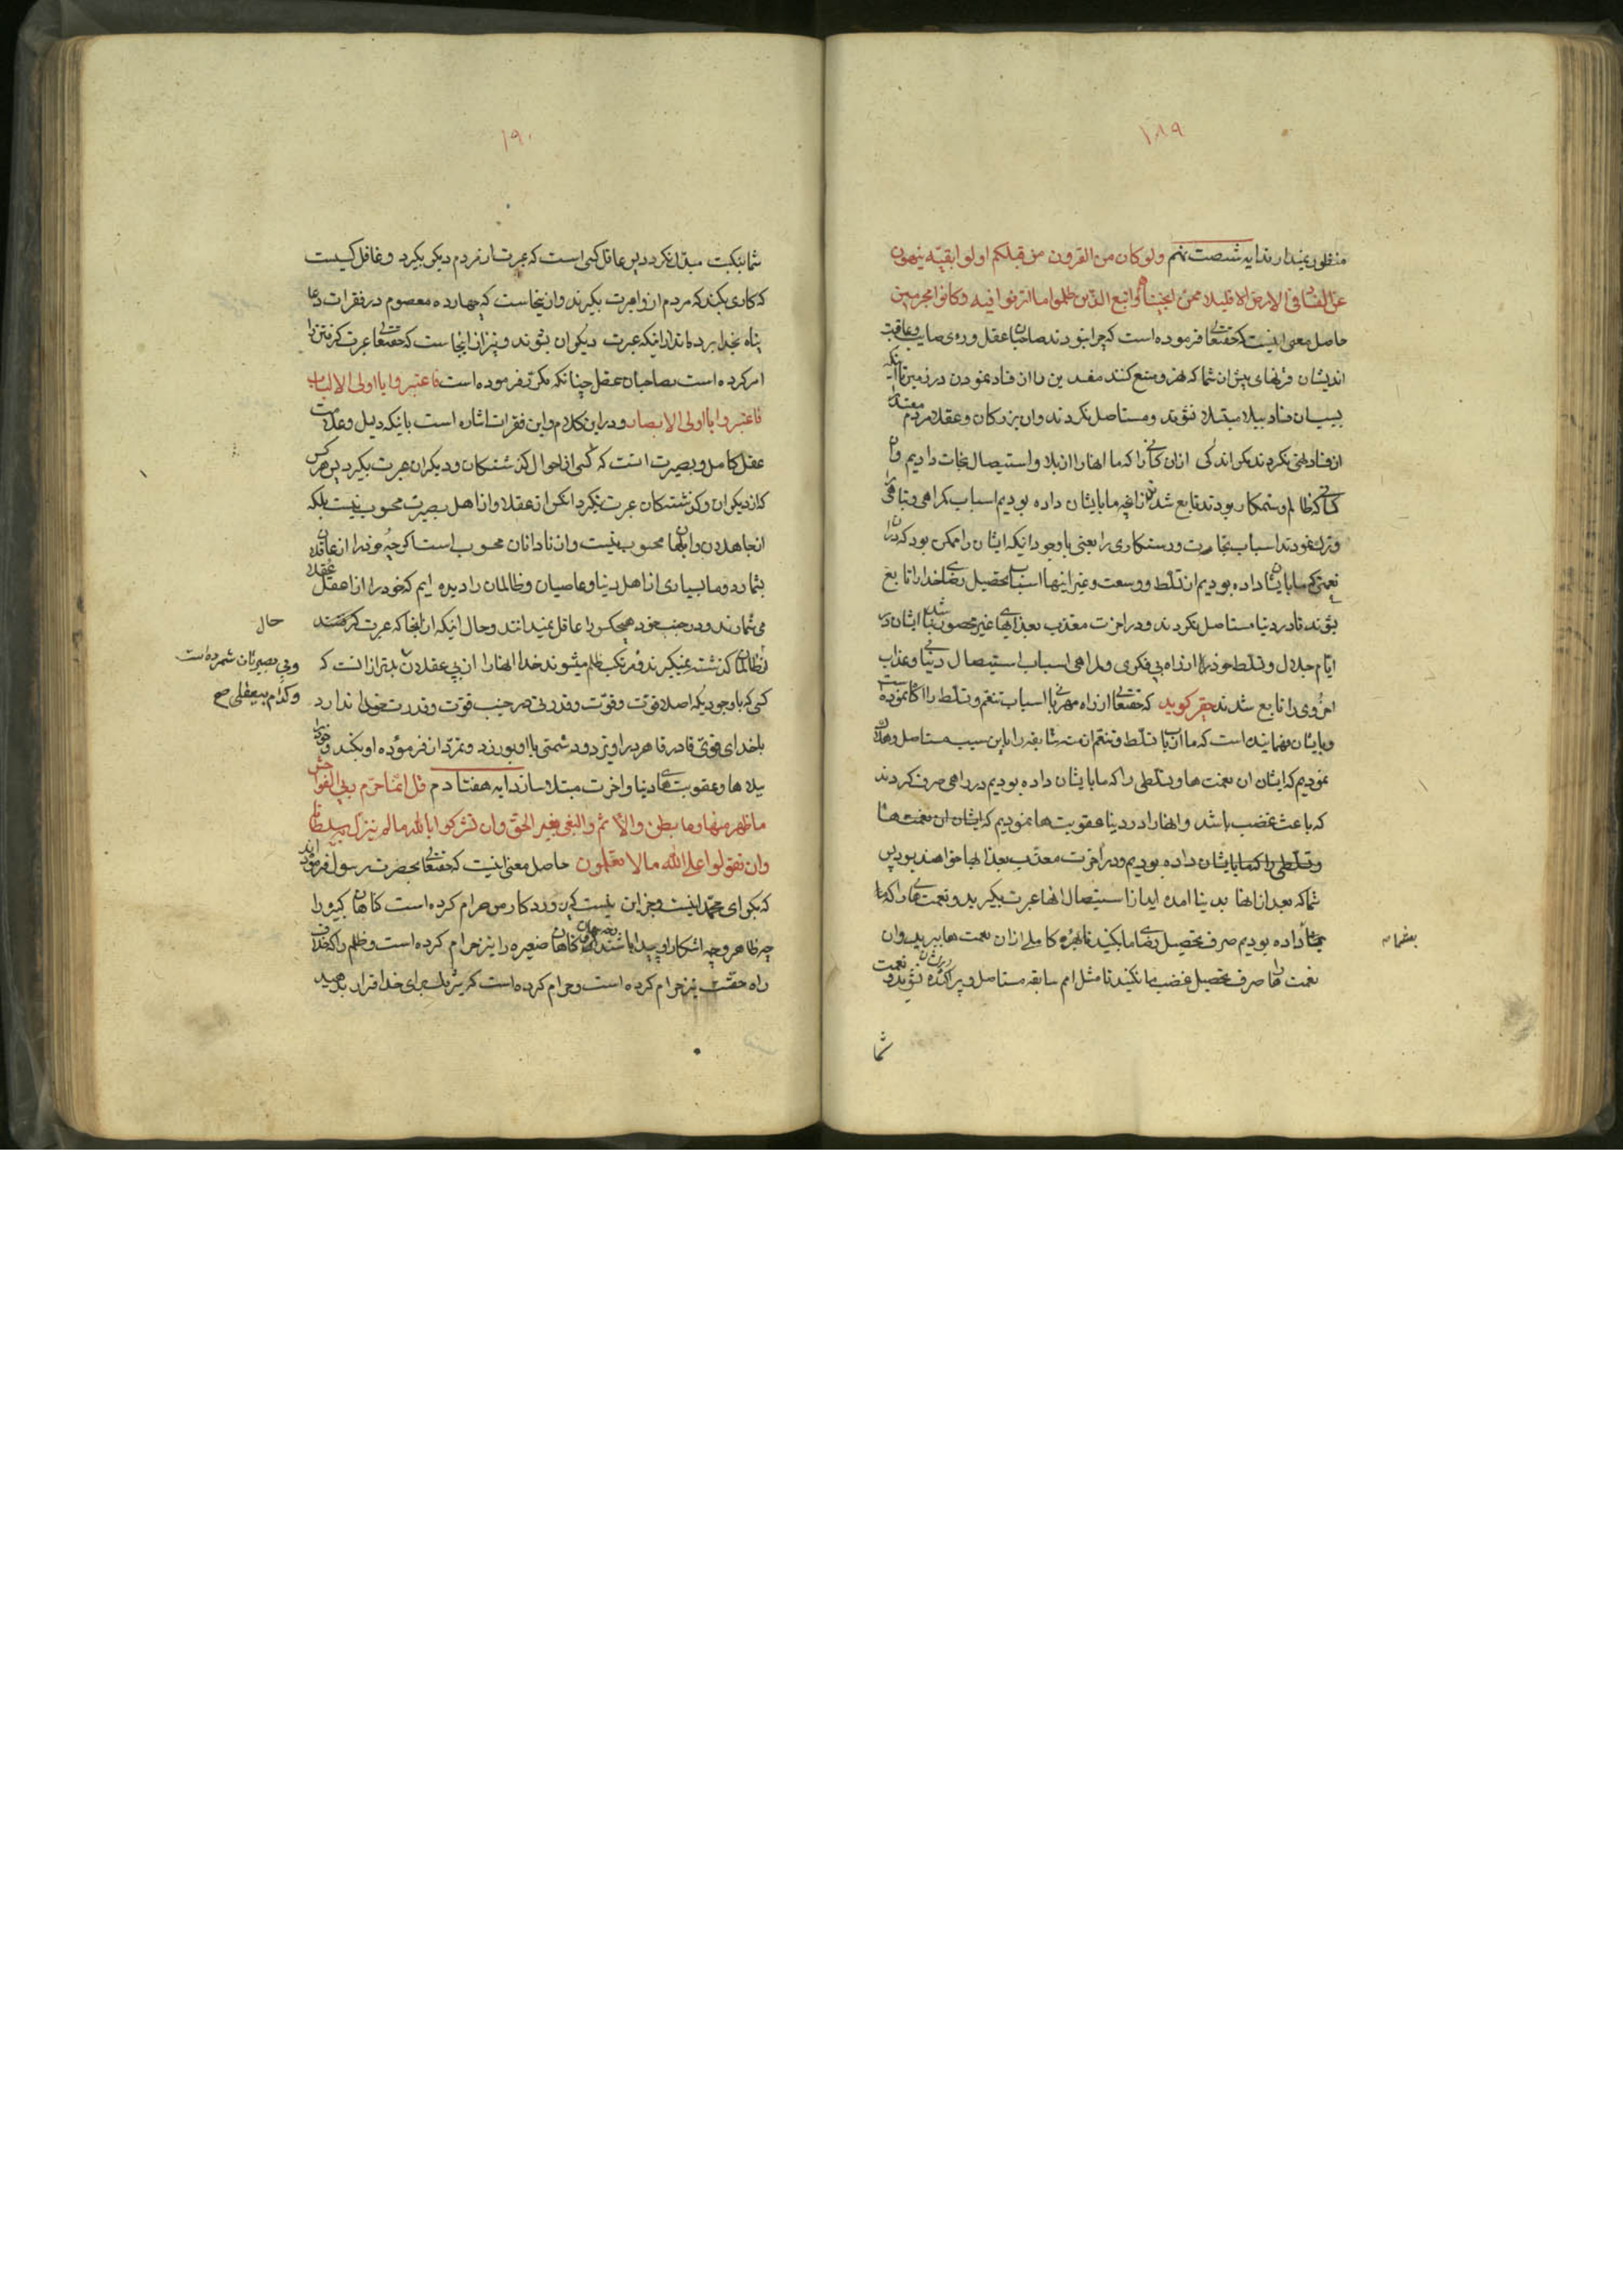 ١٨٩
منظور نمیدارند ایه شصت نهم ولو کان من القرون من قبلکم اولوا بقیّة ینهون
عن الفساد فی الارض الا قلیلا ممّن انجینا منهم واتبع الذین ظلموا ما اترفوا فیه وکانوا مجرمین
حاصل معنی اینست که حقتعالی فرموده است که چرا نبودند صاحبان عقل و روی صایب و عاقبت
اندیشان قرنهای پیش از شما که نهی و منع کنند مفسدین را از فساد نمودن در زمین تا اینکه
بسبب آن فساد ببلا مبتلا نشوند و مستاصل نکردند و ان بزرکان و عقلا مردم مفسد
از فساد نهی نکردند مکر اندکی از ان کسانی را که ما انها را از بلا و استیصال نجات دادیم و ان
کسانی که ظالم و ستمکار بودند تابع شدند انچه ما بایشان داده بودیم اسباب کمراهی و تباهی
و ترک نمودند اسباب نجات و رستکاری را یعنی باوجود انیکه ایشان را ممکن بود که ان
نعمتی که ما بایشان داده بودیم از تسلّط و وسعت و غیر اینها اسباب تحصیل رضای خدا را تابع
بشوند تا در دنیا مستاصل نکردند و در اخرت معذب بعذابهای غیر محصور نباشند ایشان در
ایّام جلال و تسلّط خود از راه بی فکری و کمراهی اسباب استیصال دنیا و عذاب
اخروی را تابع شدند حقیر کوید که حقتعالی از راه مهربانی با اسباب تنعّم و تسلّط را اکاه نموده است
و بایشان فهمانیده است که ما ارباب تسلّط و تنعّم امت سابقه را باین سبب مستاصل و هلاک
نمودیم که ایشان ان نعمت ها و تسلطی را که ما بایشان داده بودیم در راهی صرف کردند
که باعث غضب باشد و انها را در دنیا عقوبت ها نمودیم که ایشان ان نعمت ها
و تسلّطی را که ما بایشان داده بودیم و در اخرت معذّب بعذابها خواهند بود پس
شما که بعد از انها بدنیا امده اید از استیصال انها عبرت بکیرید و نعمت های را که ما
بشما داده بودیم صرف تحصیل رضای ما بکنید تا بهره کاملی از ان نعمت ها ببرید و ان
بشما
نعمت ها را صرف تحصیل غضب ما نکنید تا مثل امم سابقه مستاصل و پراکنده نشوید و نعمت
شما
١٩٠
شما بنکبت مبدّل نکردد پس عاقل کسی است که عبرت از مردم دیکر بکیرد و غافل کسیست
که کاری بکند که مردم از او عبرت بکیرند و از ینجاست که چهارده معصوم در فقرات دعا
پناه بخدا برده اند از اینکه عبرت دیکران بشوند و نیز از اینجاست که حقتعالی عبرت کرفتن را
امر کرده است بصاحبان عقل چنانکه مکرّر فرموده است فاعتبروا یا اولی الالباب
فاعتبروا یا اولی الابصار و در این کلام و این فقرات اشاره است باینکه دلیل و علامت
عقل کامل و بصیرت انست که کسی از احوال کذشتکان و دیکران عبرت بکیرد پس هر کس
که از دیکران و کذشتکان عبرت نکیرد انکس از عقلا و از اهل بصیرت محسوب نیست بلکه
از جاهلان و ابلهان محسوب است و از نادانان محسوب است اکرچه خود را از عاقلان
بشمارد و ما بسیاری از اهل دنیا و عاصیان و ظالمان را دیده ایم که خود را از اعقل عقلا
می شمارند و در جنب خود هیچکس را عاقل نمیدانند و حال انیکه از انجا که عبرت کرفتند
حال
از ظالمان کذشته نمیکیرند و مرتکب ظلم میشوند خدا انها را از بی عقلان بدتر از انست که
و بی بصیرتان شمرده است
و کدام بیعقلی صح
کسی که باوجودیکه اصلا قوّت و قوّت و قدرتی در جنب قوّت و قدرت خدا ندارد
باخدای قویّ قادر قاهر برابری و دشمنی با او بورزد و تمرّد از فرموده او بکند و خود را
ببلا ها و عقوبت های دنیا و اخرت مبتلا سازد ایه هفتادم قل انّما حرّم ربّی الفواحش
ما ظهر منها وما بطن والاثم والبغی بغیر الحقّ وان تشرکوا بالله ما لم ینزّل به سلطانا
وان تقولوا علی الله ما لا تعلمون حاصل معنی اینست که حقتعالی بحضرت رسول فرموده اند
که بکو ای محمّد اینست و جز این نیست که پروردکار من حرام کرده است کناهان کبیره را
چه ظاهر و چه اشکارا و پیدا باشند و کناهان صغیره را نیز حرام کرده است و ظلم را که خلاف
راه حقّست نیز حرام کرده است و حرام کرده است که شریک برای خدا قرار بدهید